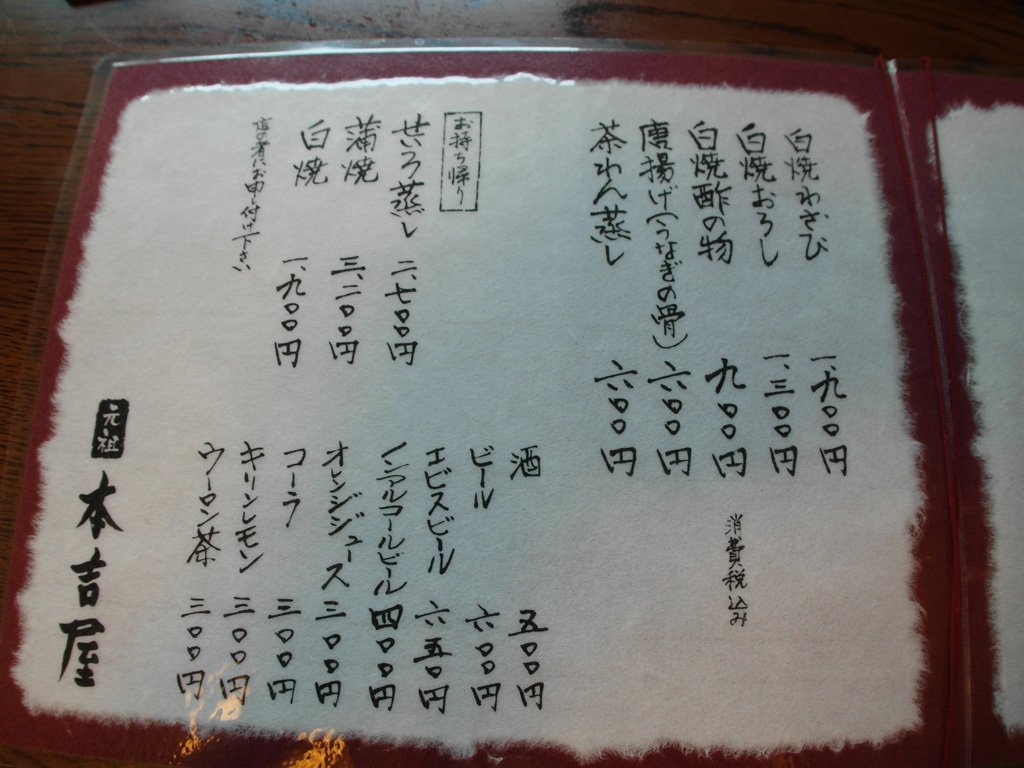 白焼わさび 一、九〇〇円
白焼おろし 一、三〇〇円
白焼酢の物 九〇〇円
唐揚げ(うなぎの骨) 六〇〇円
茶わん蒸し 六〇〇円
消費税込み
お持ち帰り
せいろ蒸し 二、七〇〇円
蒲焼 三、二〇〇円
白焼 一、九〇〇円
店の者にお申し付け下さい
酒 五〇〇円
ビール 六〇〇円
エビスビール 六五〇円
ノンアルコールビール 四〇〇円
オレンジジュース 三〇〇円
コーラ 三〇〇円
キリンレモン 三〇〇円
ウーロン茶 三〇〇円
元祖
本吉屋